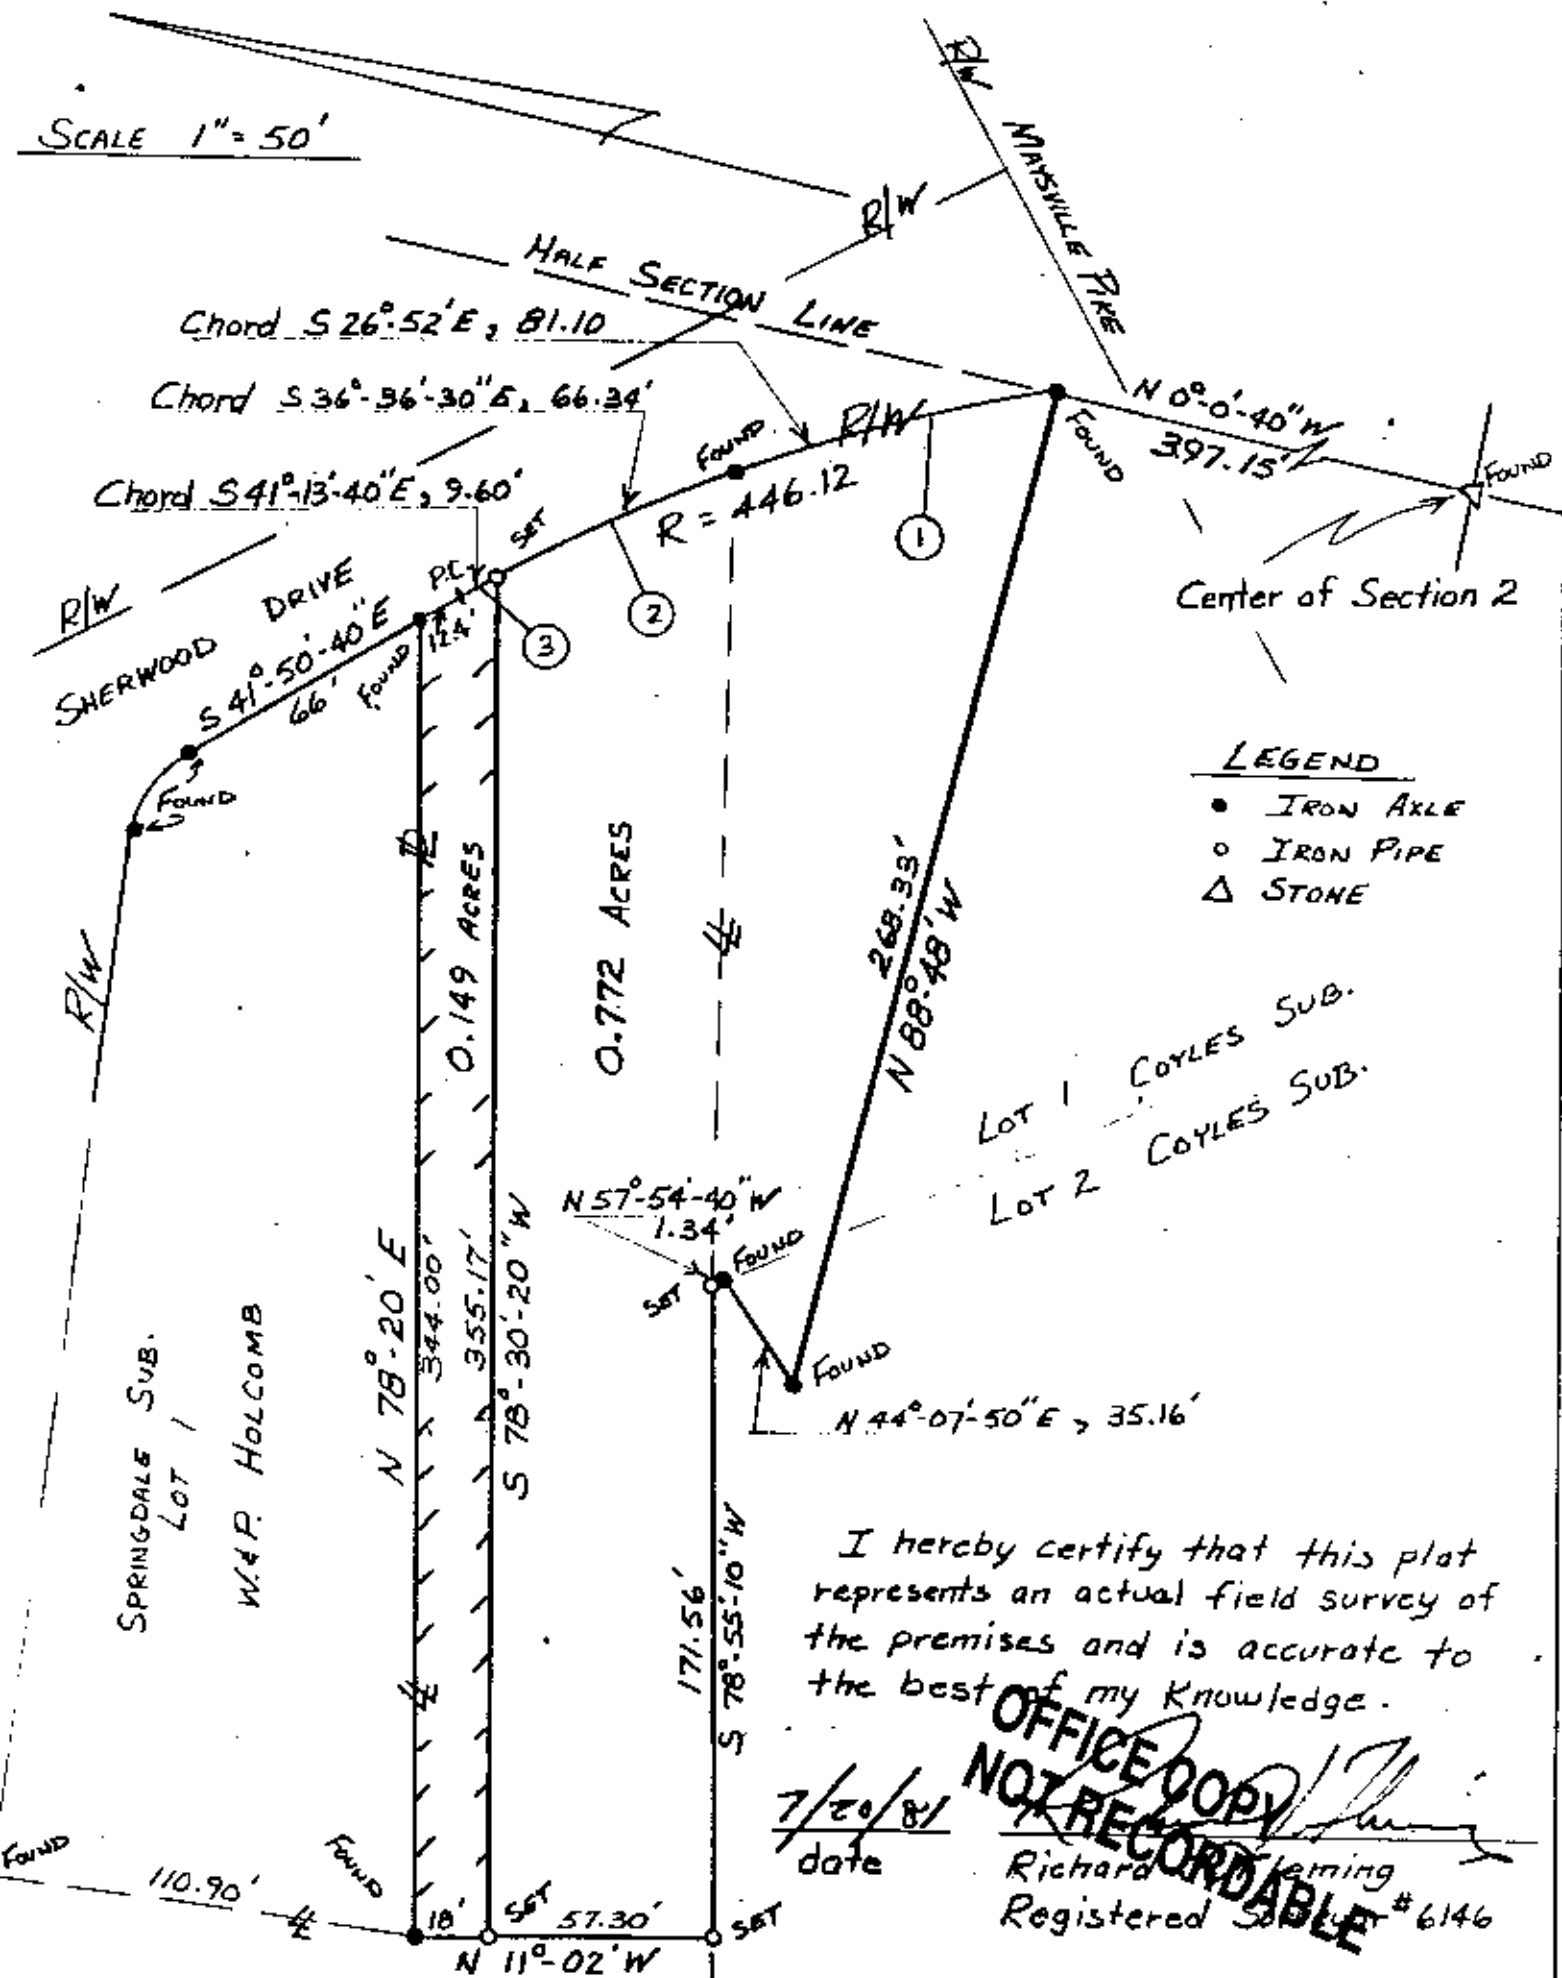 SCALE 1" = 50'
R/W
MAYSVILLE PIKE
R/W
HALF SECTION LINE
Chord S 26°-52' E, 81.10
Chord S 36°-36'-30" E, 66.34'
Chord S 41°-13'-40" E, 9.60'
N 0°-0'-40" W
397.15'
FOUND
FOUND
Center of Section 2
FOUND
R/W
R = 446.12
1
2
3
SET
P.C.
12.4'
R/W
SHERWOOD DRIVE
S 41°-50'-40" E
66'
FOUND
FOUND
R/W
LEGEND
● IRON AXLE
○ IRON PIPE
△ STONE
0.149 ACRES
0.772 ACRES
268.33'
N 88°-48' W
LOT 1 COYLES SUB.
LOT 2 COYLES SUB.
N 57°-54'-40" W
1.34'
FOUND
SET
FOUND
N 44°-07'-50" E, 35.16'
N 78°-20' E
344.00'
355.17'
S 78°-30'-20" W
SPRINGDALE SUB.
LOT 1
W. & P. HOLCOMB
171.56'
S 78°-55'-10" W
I hereby certify that this plat
represents an actual field survey of
the premises and is accurate to
the best of my Knowledge.
OFFICE COPY
NOT RECORDABLE
7/20/81
date
Richard Fleming
Registered Surveyor #6146
FOUND
110.90'
FOUND
18'
SET
57.30'
SET
N 11°-02' W